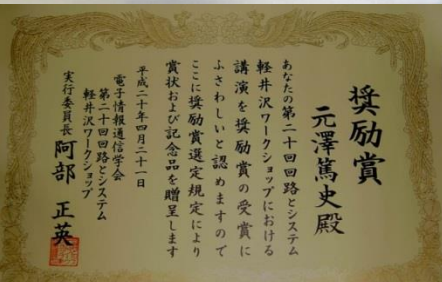 奨励賞
元澤篤史殿
あなたの第二十回回路とシステム
軽井沢ワークショップにおける
講演を奨励賞の受賞に
ふさわしいと認めますので
ここに奨励賞選定規定により
賞状および記念品を贈呈します
平成二十年四月二十一日
電子情報通信学会
第二十回回路とシステム
軽井沢ワークショップ
実行委員長 阿部 正英